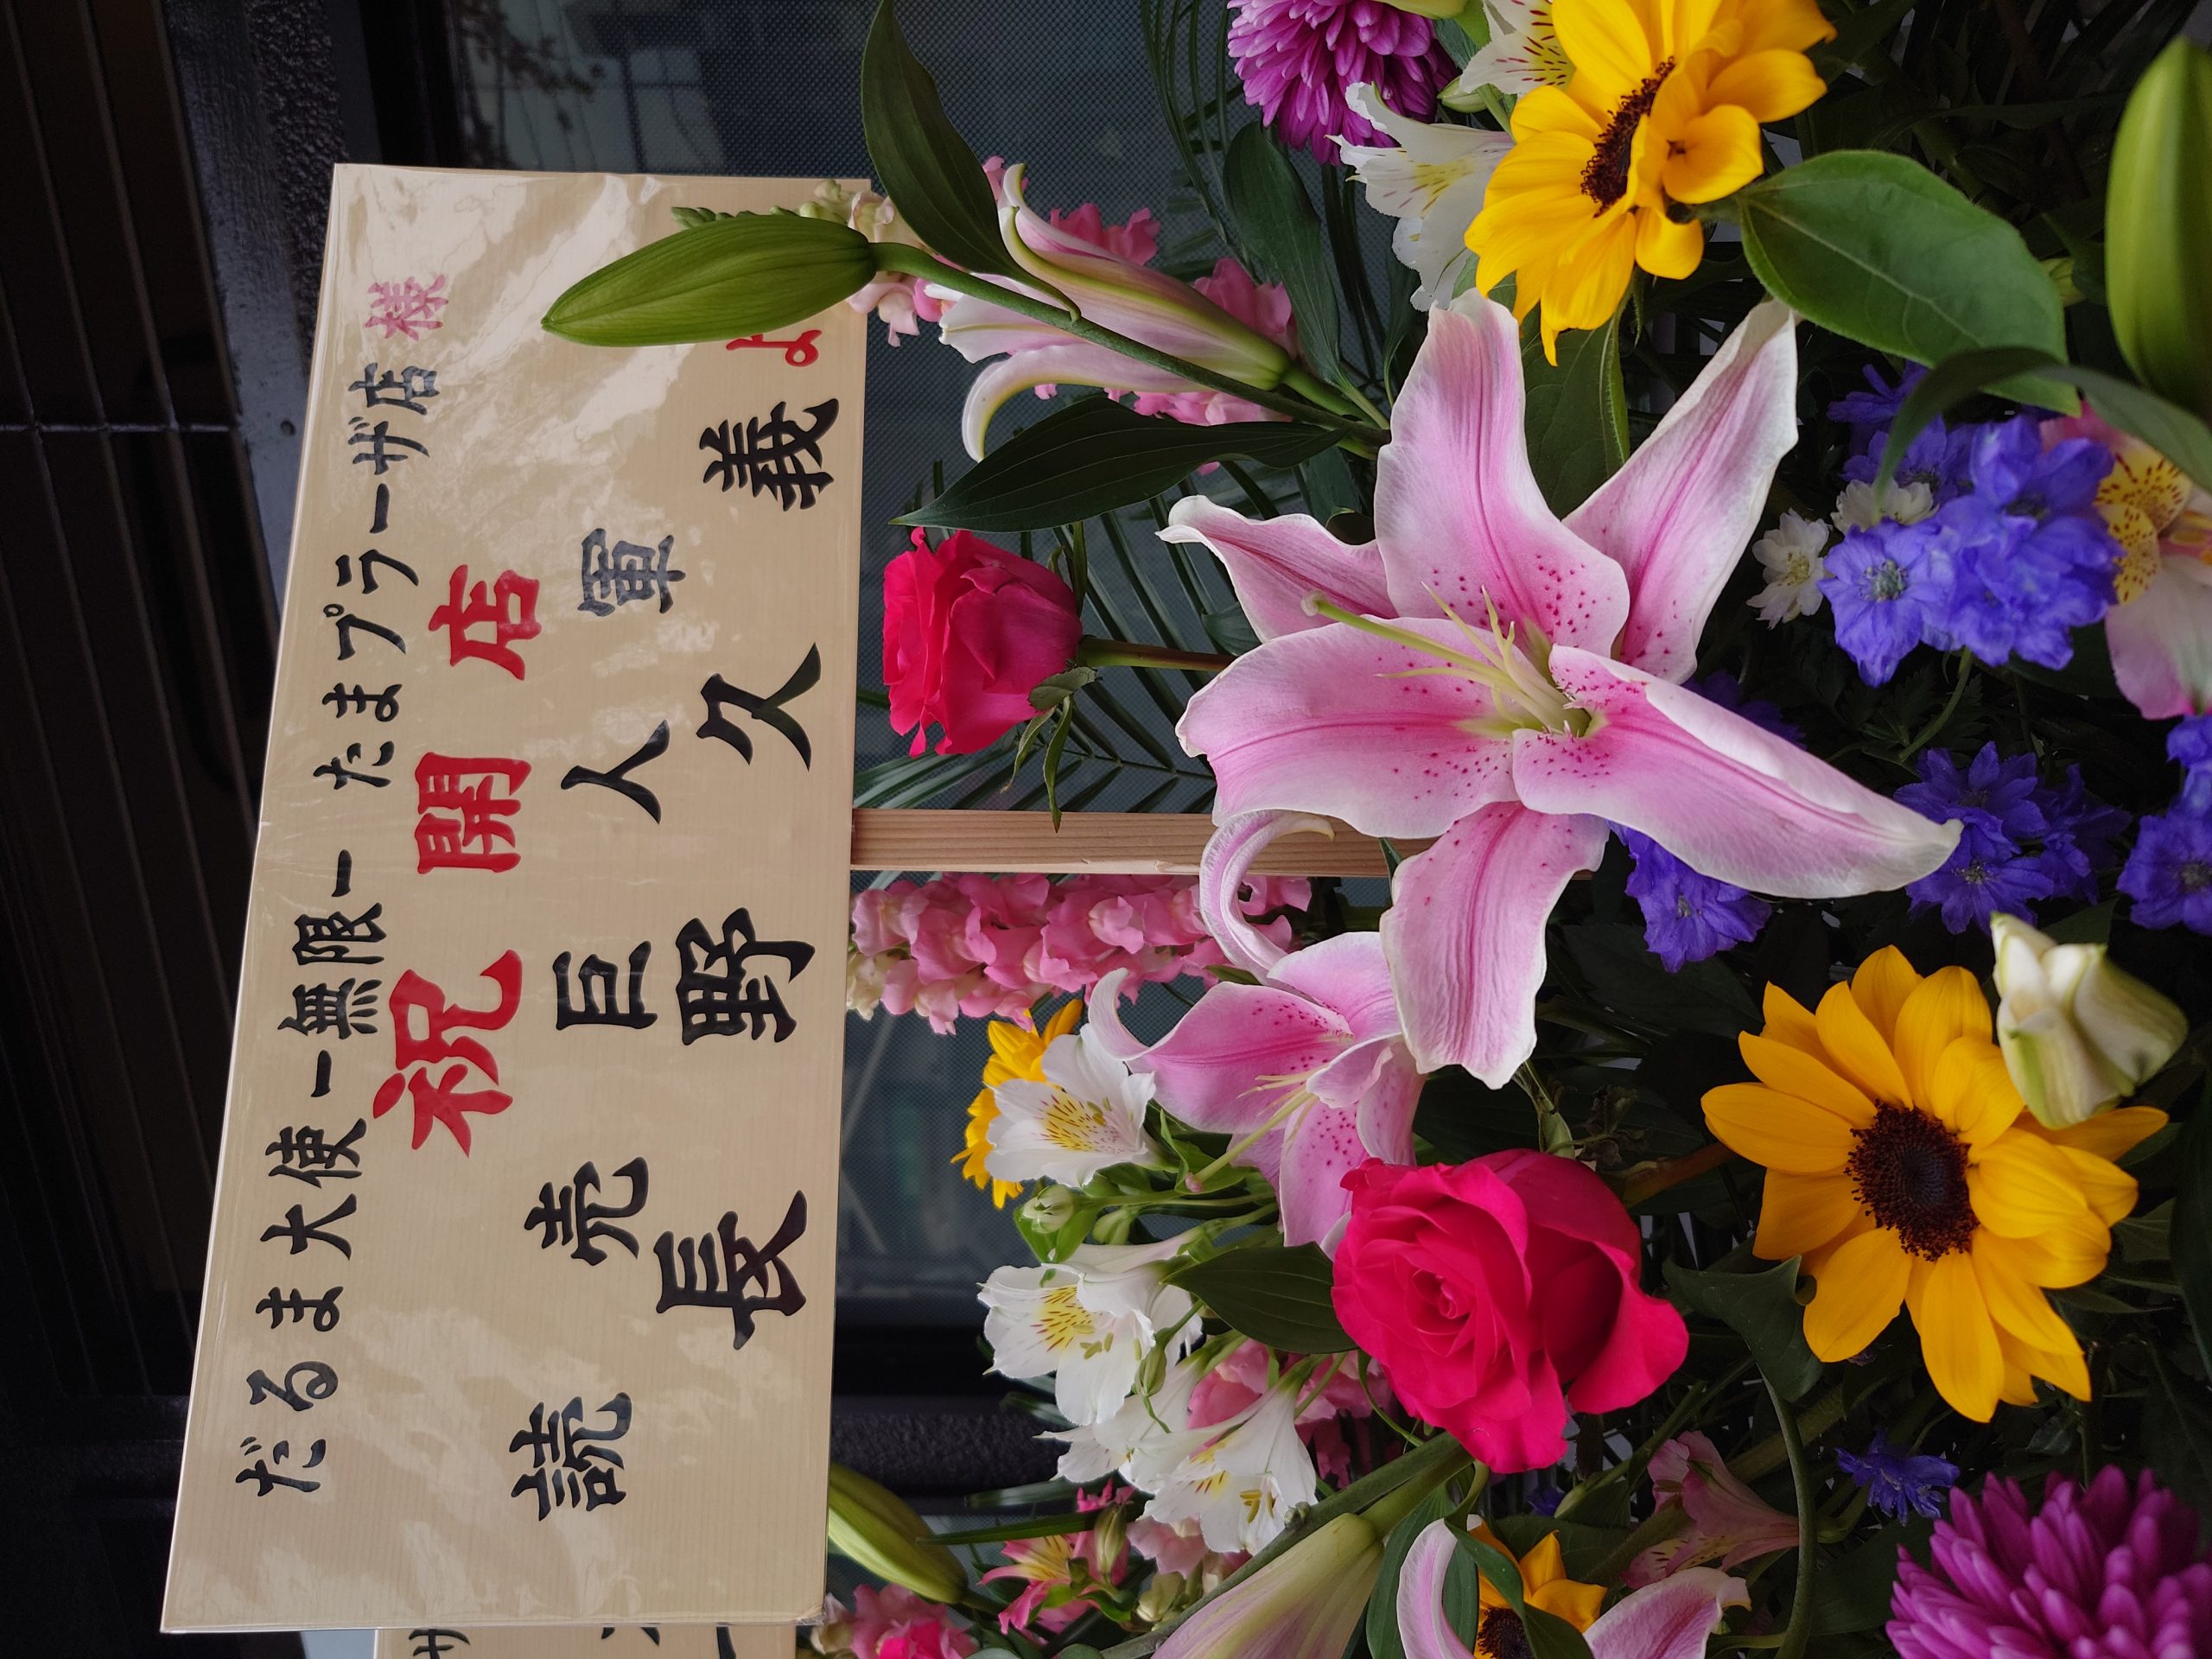 だるま大使ー無限ー たまプラーザ店様
祝開店
読売巨人軍
長野久義
よ